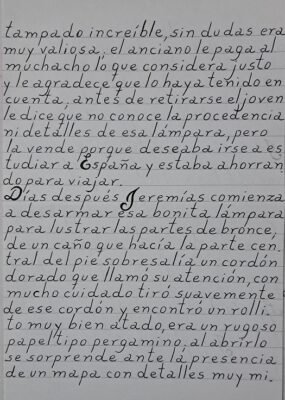 tampado increíble, sin dudas era
muy valiosa; el anciano le paga al
muchacho lo que considera justo
y le agradece que lo haya tenido en
cuenta, antes de retirarse el joven
le dice que no conoce la procedencia
ni detalles de esa lámpara, pero
la vende porque deseaba irse a es
tudiar a España y estaba ahorran
do para viajar.
Días después Jeremías comienza
a desarmar esa bonita lámpara
para lustrar las partes de bronce,
de un caño que hacía la parte cen_
tral del pie sobresalía un cordón
dorado que llamó su atención, con
mucho cuidado tiró suavemente
de ese cordón y encontró un rolli_
to muy bien atado, era un rugoso
papel tipo pergamino, al abrirlo
se sorprende ante la presencia
de un mapa con detalles muy mi_